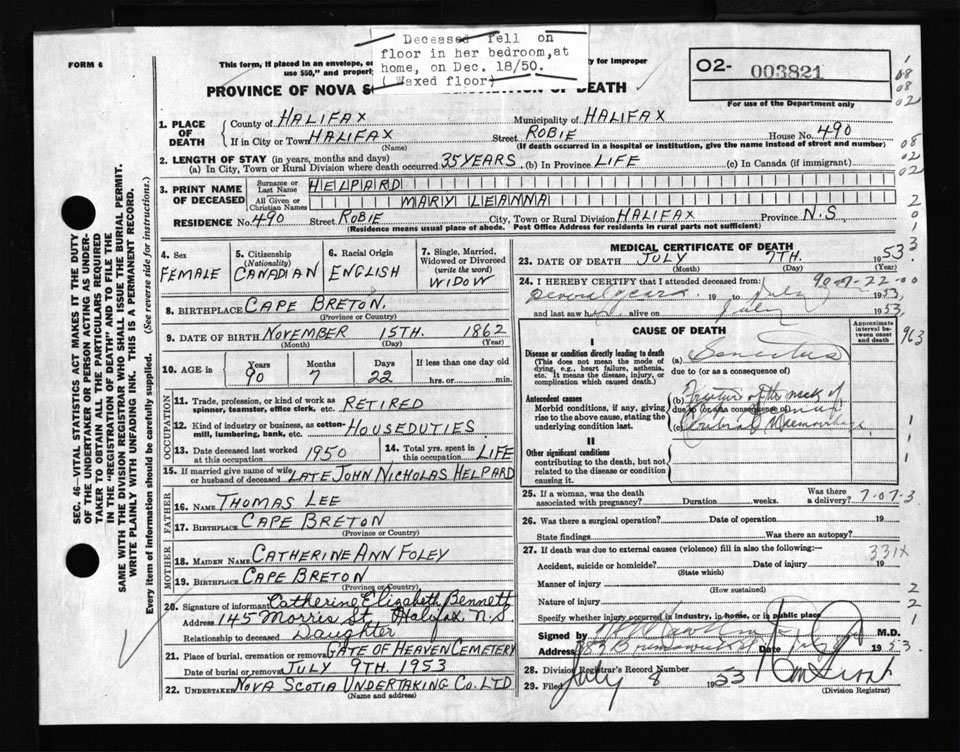 Deceased fell on
floor in her bedroom, at
home, on Dec. 18/50.
(Waxed floor)
FORM 6
This form, if placed in an envelope, 
use $50," and
by for improper
02- 003821
For use of the Department only
PROVINCE OF NOVA S
OF DEATH
1. PLACE OF DEATH
County of HALIFAX Municipality of HALIFAX
If in City or Town HALIFAX Street ROBIE House No. 490
(Name) (If death occurred in a hospital or institution, give the name instead of street and number)
2. LENGTH OF STAY (in years, months and days)
(a) In City, Town or Rural Division where death occurred 35 YEARS (b) In Province LIFE (c) In Canada (if immigrant)
3. PRINT NAME OF DECEASED
Surname or Last Name HELPARD
All Given or Christian Names MARY LEANNA
RESIDENCE No. 490 Street ROBIE City, Town or Rural Division HALIFAX Province N.S.
(Residence means usual place of abode. Post Office Address for residents in rural parts not sufficient)
4. Sex FEMALE
5. Citizenship (Nationality) CANADIAN
6. Racial Origin ENGLISH
7. Single, Married, Widowed or Divorced (write the word) WIDOW
8. BIRTHPLACE CAPE BRETON.
(Province or Country)
9. DATE OF BIRTH NOVEMBER 15TH. 1862
(Month) (Day) (Year)
10. AGE in Years 90 Months 7 Days 22 If less than one day old
hrs. or min.
OCCUPATION
11. Trade, profession, or kind of work as spinner, teamster, office clerk, etc. RETIRED
12. Kind of industry or business, as cotton-mill, lumbering, bank, etc. HOUSEDUTIES
13. Date deceased last worked at this occupation 1950
14. Total yrs. spent in this occupation LIFE
15. If married give name of wife or husband of deceased LATE JOHN NICHOLAS HELPARD
FATHER
16. NAME THOMAS LEE
17. BIRTHPLACE CAPE BRETON
(Province or Country)
MOTHER
18. MAIDEN NAME CATHERINE ANN FOLEY
19. BIRTHPLACE CAPE BRETON
(Province or Country)
20. Signature of informant Catherine Elizabeth Bennett
Address 145 Morris St. Halifax, N.S.
Relationship to deceased Daughter
21. Place of burial, cremation or removal GATE OF HEAVEN CEMETERY
Date of burial or removal JULY 9TH. 1953
22. UNDERTAKER NOVA SCOTIA UNDERTAKING CO. LTD
(Name and address)
MEDICAL CERTIFICATE OF DEATH
23. DATE OF DEATH JULY 7TH. 1953
(Month) (Day) (Year)
24. I HEREBY CERTIFY that I attended deceased from:
Several years 19 to July 1953,
and last saw h alive on July 1953,
CAUSE OF DEATH
Approximate interval between onset and death
I
Disease or condition directly leading to death
(This does not mean the mode of dying, e.g., heart failure, asthenia, etc. It means the disease, injury, or complication which caused death.)
(a)
due to (or as a consequence of)
Antecedent causes
Morbid conditions, if any, giving rise to the above cause, stating the underlying condition last.
(b) Fracture of the neck of
due to (or as a consequence of)
(c) Cerebral Haemorrhage
II
Other significant conditions
contributing to the death, but not related to the disease or condition causing it.
25. If a woman, was the death associated with pregnancy? Duration weeks. Was there a delivery? 7-07-3
26. Was there a surgical operation? Date of operation 19
State findings Was there an autopsy?
27. If death was due to external causes (violence) fill in also the following:—
331X
Accident, suicide or homicide? Date of injury 19
(State which)
Manner of injury
(How sustained)
Nature of injury
Specify whether injury occurred in industry, in home, or in public place
Signed by M.D.
Address Date 1953
28. Division Registrar's Record Number
29. Filed July 8 1953
(Division Registrar)
SEC. 46—VITAL STATISTICS ACT MAKES IT THE DUTY
OF THE UNDERTAKER OR PERSON ACTING AS UNDER-
TAKER TO OBTAIN ALL THE PARTICULARS REQUIRED
IN THE "REGISTRATION OF DEATH" AND TO FILE THE
SAME WITH THE DIVISION REGISTRAR WHO SHALL ISSUE THE BURIAL PERMIT.
WRITE PLAINLY WITH UNFADING INK. THIS IS A PERMANENT RECORD.
Every item of information should be carefully supplied. (See reverse side for instructions.)